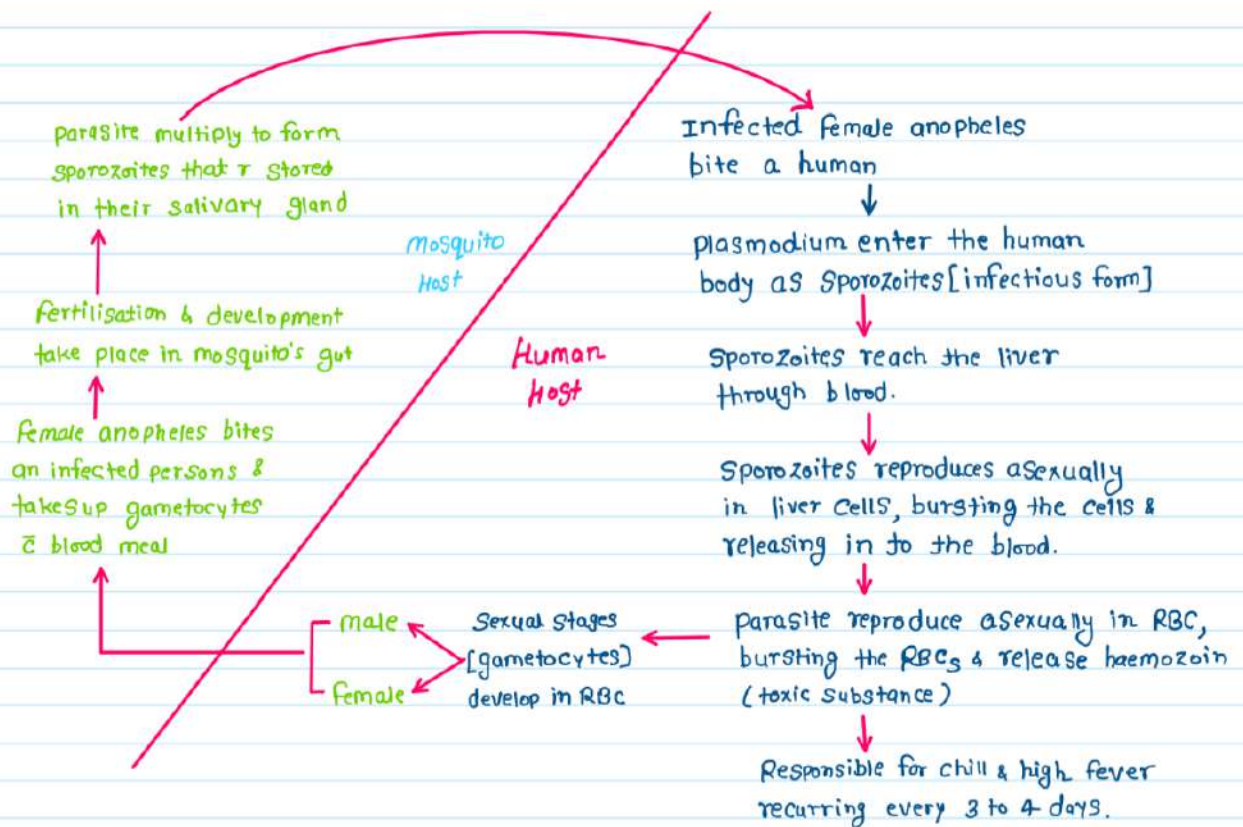 Infected female anopheles
bite a human
plasmodium enter the human
body as sporozoites [infectious form]
Sporozoites reach the liver
through blood.
Sporozoites reproduces asexually
in liver cells, bursting the cells &
releasing in to the blood.
Parasite reproduce asexually in RBC,
bursting the RBCs & release haemozoin
(toxic substance)
Responsible for chill & high fever
recurring every 3 to 4 days.
Sexual stages
[gametocytes]
develop in RBC
male
female
Female anopheles bites
an infected persons &
takes up gametocytes
c̄ blood meal
fertilisation & development
take place in mosquito's gut
parasite multiply to form
sporozoites that r stored
in their salivary gland
Mosquito
Host
Human
Host